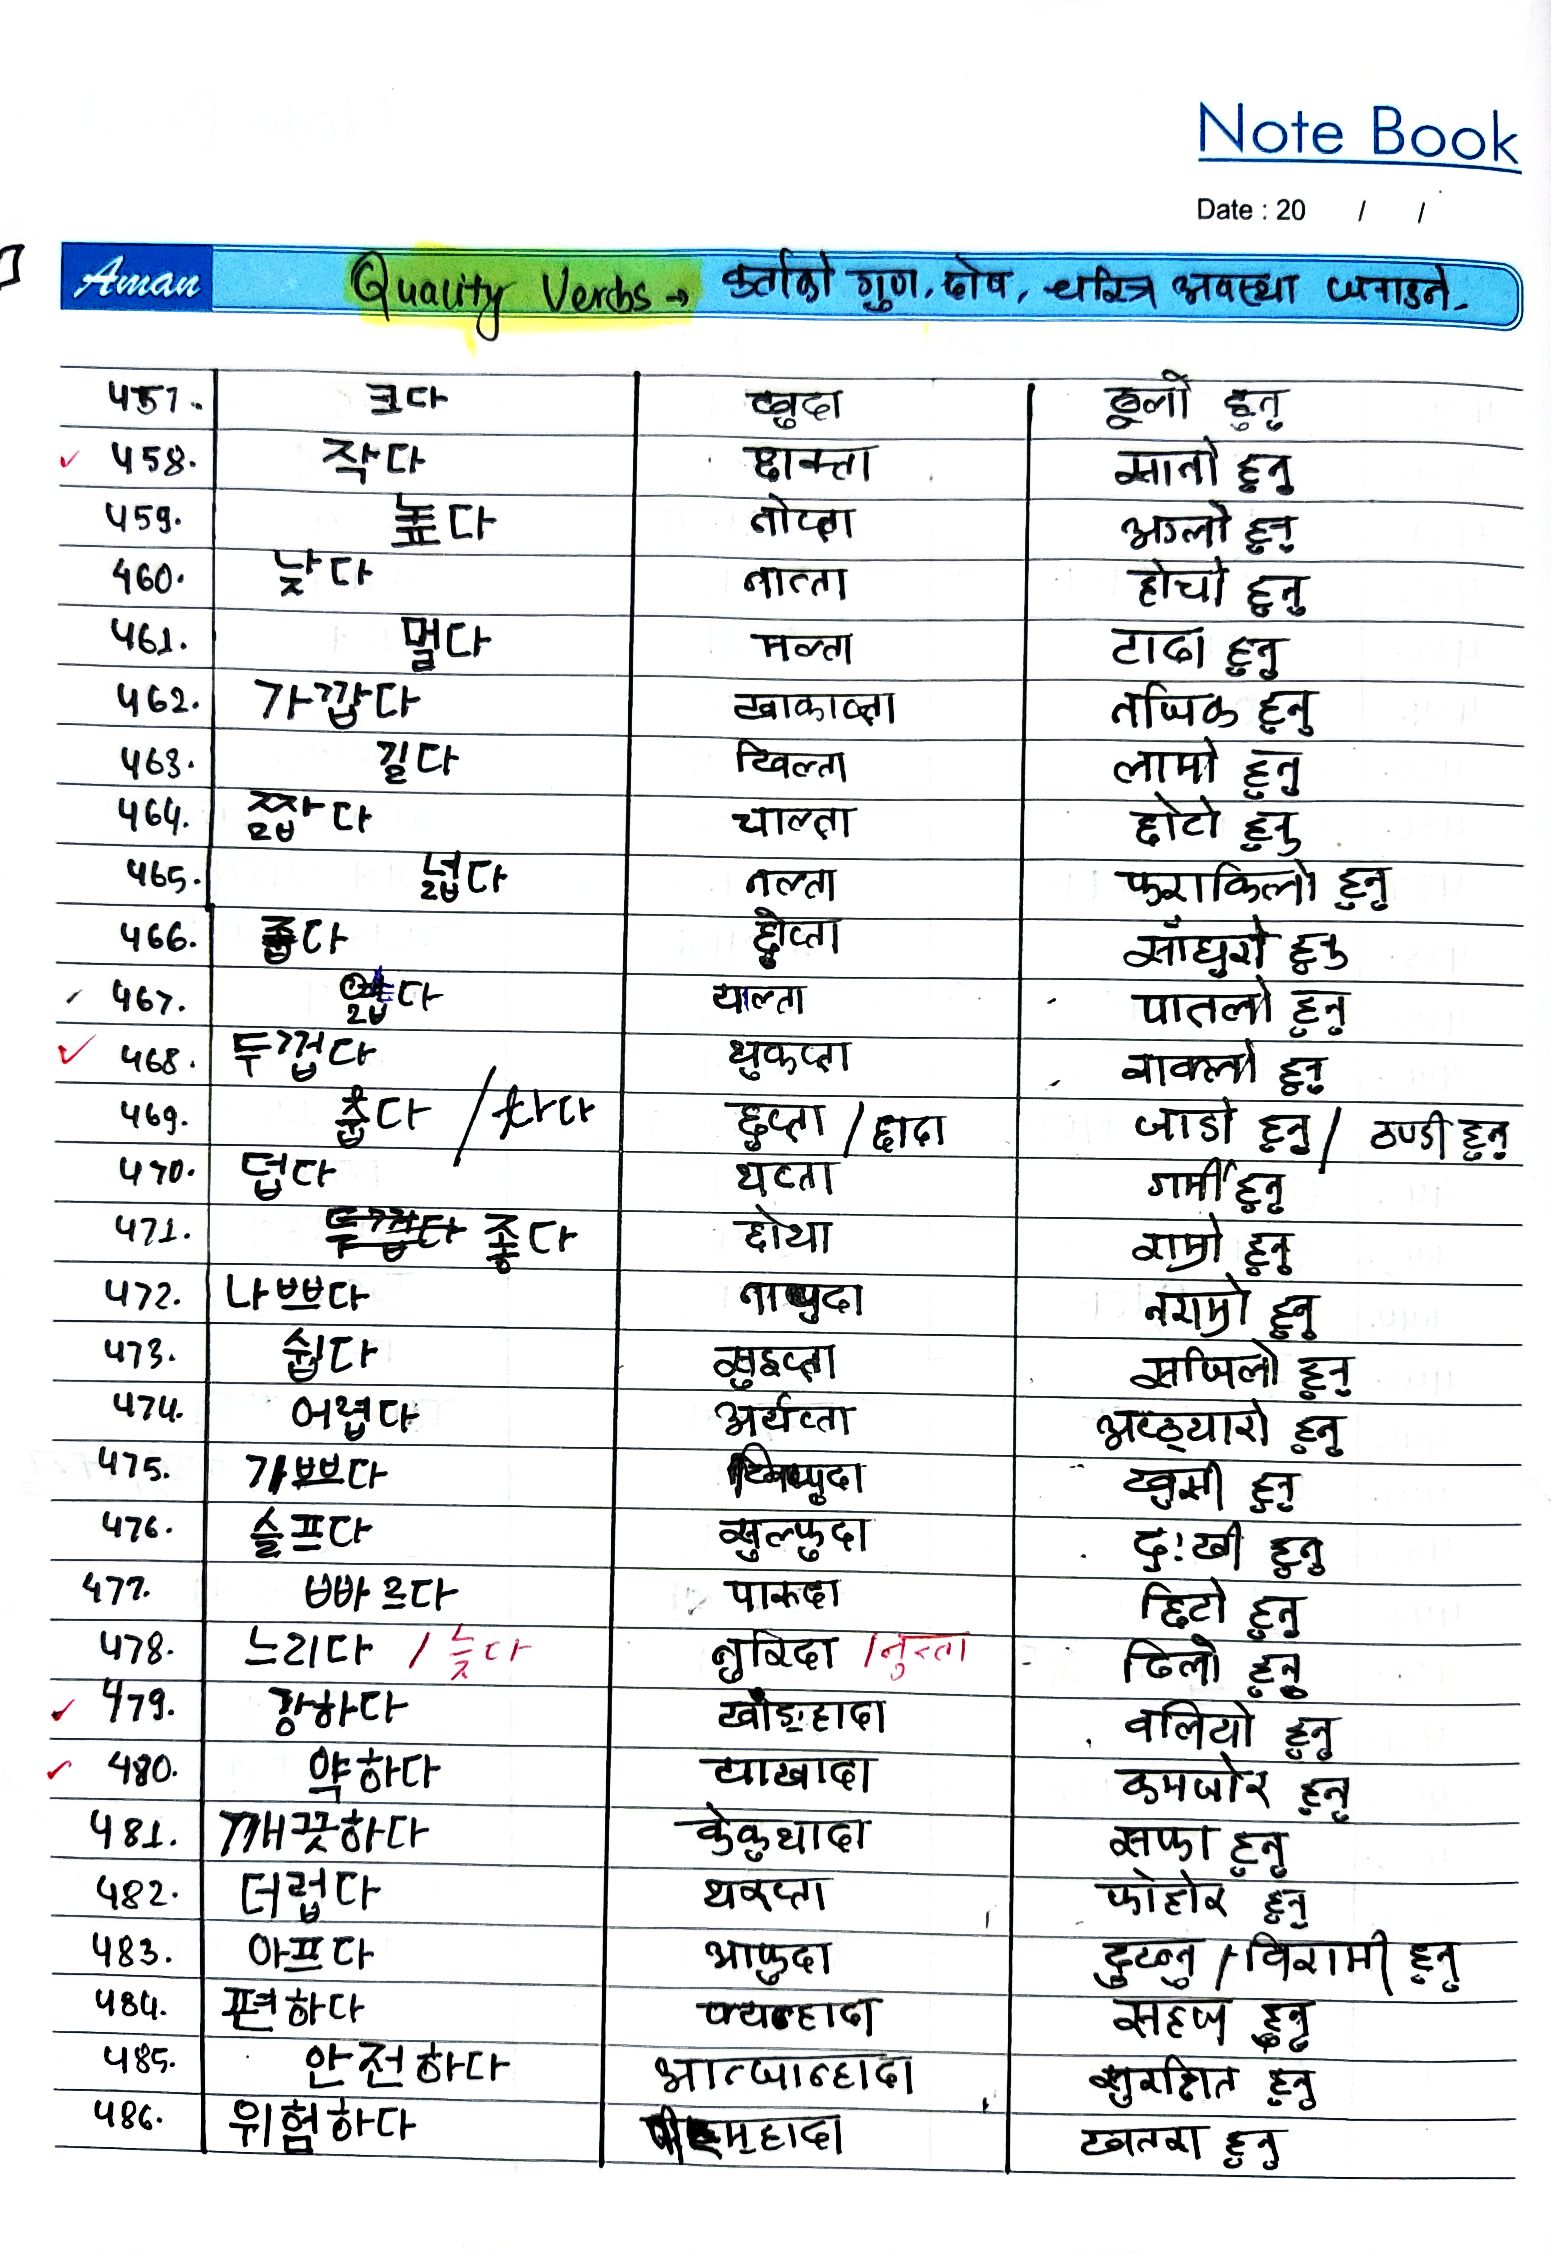 Note Book
Date : 20 / /
Aman Quality Verbs → कर्ताको गुण, दोष, चरित्र अवस्था जनाउने.
457. 크다 खुदा ठूलो हुनु
✓ 458. 작다 छाक्ता सानो हुनु
459. 높다 नोप्ता अग्लो हुनु
460. 낮다 नात्ता होचो हुनु
461. 멀다 मल्ता टाढा हुनु
462. 가깝다 खाकाप्ता नजिक हुनु
463. 길다 खिल्ता लामो हुनु
464. 짧다 चाल्ता छोटो हुनु
465. 넓다 नल्ता फराकिलो हुनु
466. 좁다 छोप्ता साँघुरो हुनु
467. 얇다 याल्ता पातलो हुनु
✓ 468. 두껍다 थुकप्ता बाक्लो हुनु
469. 춥다 / 차다 छुप्ता / छादा जाडो हुनु / ठण्डी हुनु
470. 덥다 थप्ता गर्मी हुनु
471. 좋다 छोथा राम्रो हुनु
472. 나쁘다 नाप्पुदा नराम्रो हुनु
473. 쉽다 सुइप्ता सजिलो हुनु
474. 어렵다 अर्यप्ता अप्ठ्यारो हुनु
475. 기쁘다 खिप्पुदा खुसी हुनु
476. 슬프다 सुल्फुदा दु:खी हुनु
477. 빠르다 पारुदा छिटो हुनु
478. 느리다 / 늦다 नुरिदा / नुत्ता ढिलो हुनु
✓ 479. 강하다 खाङहादा बलियो हुनु
✓ 480. 약하다 याखादा कमजोर हुनु
481. 깨끗하다 केकुथादा सफा हुनु
482. 더럽다 थरप्ता फोहोर हुनु
483. 아프다 आफुदा दुख्नु / विरामी हुनु
484. 편하다 फ्यन्हादा सहज हुनु
485. 안전하다 आन्जान्हादा सुरक्षित हुनु
486. 위험하다 खतरा हुनु